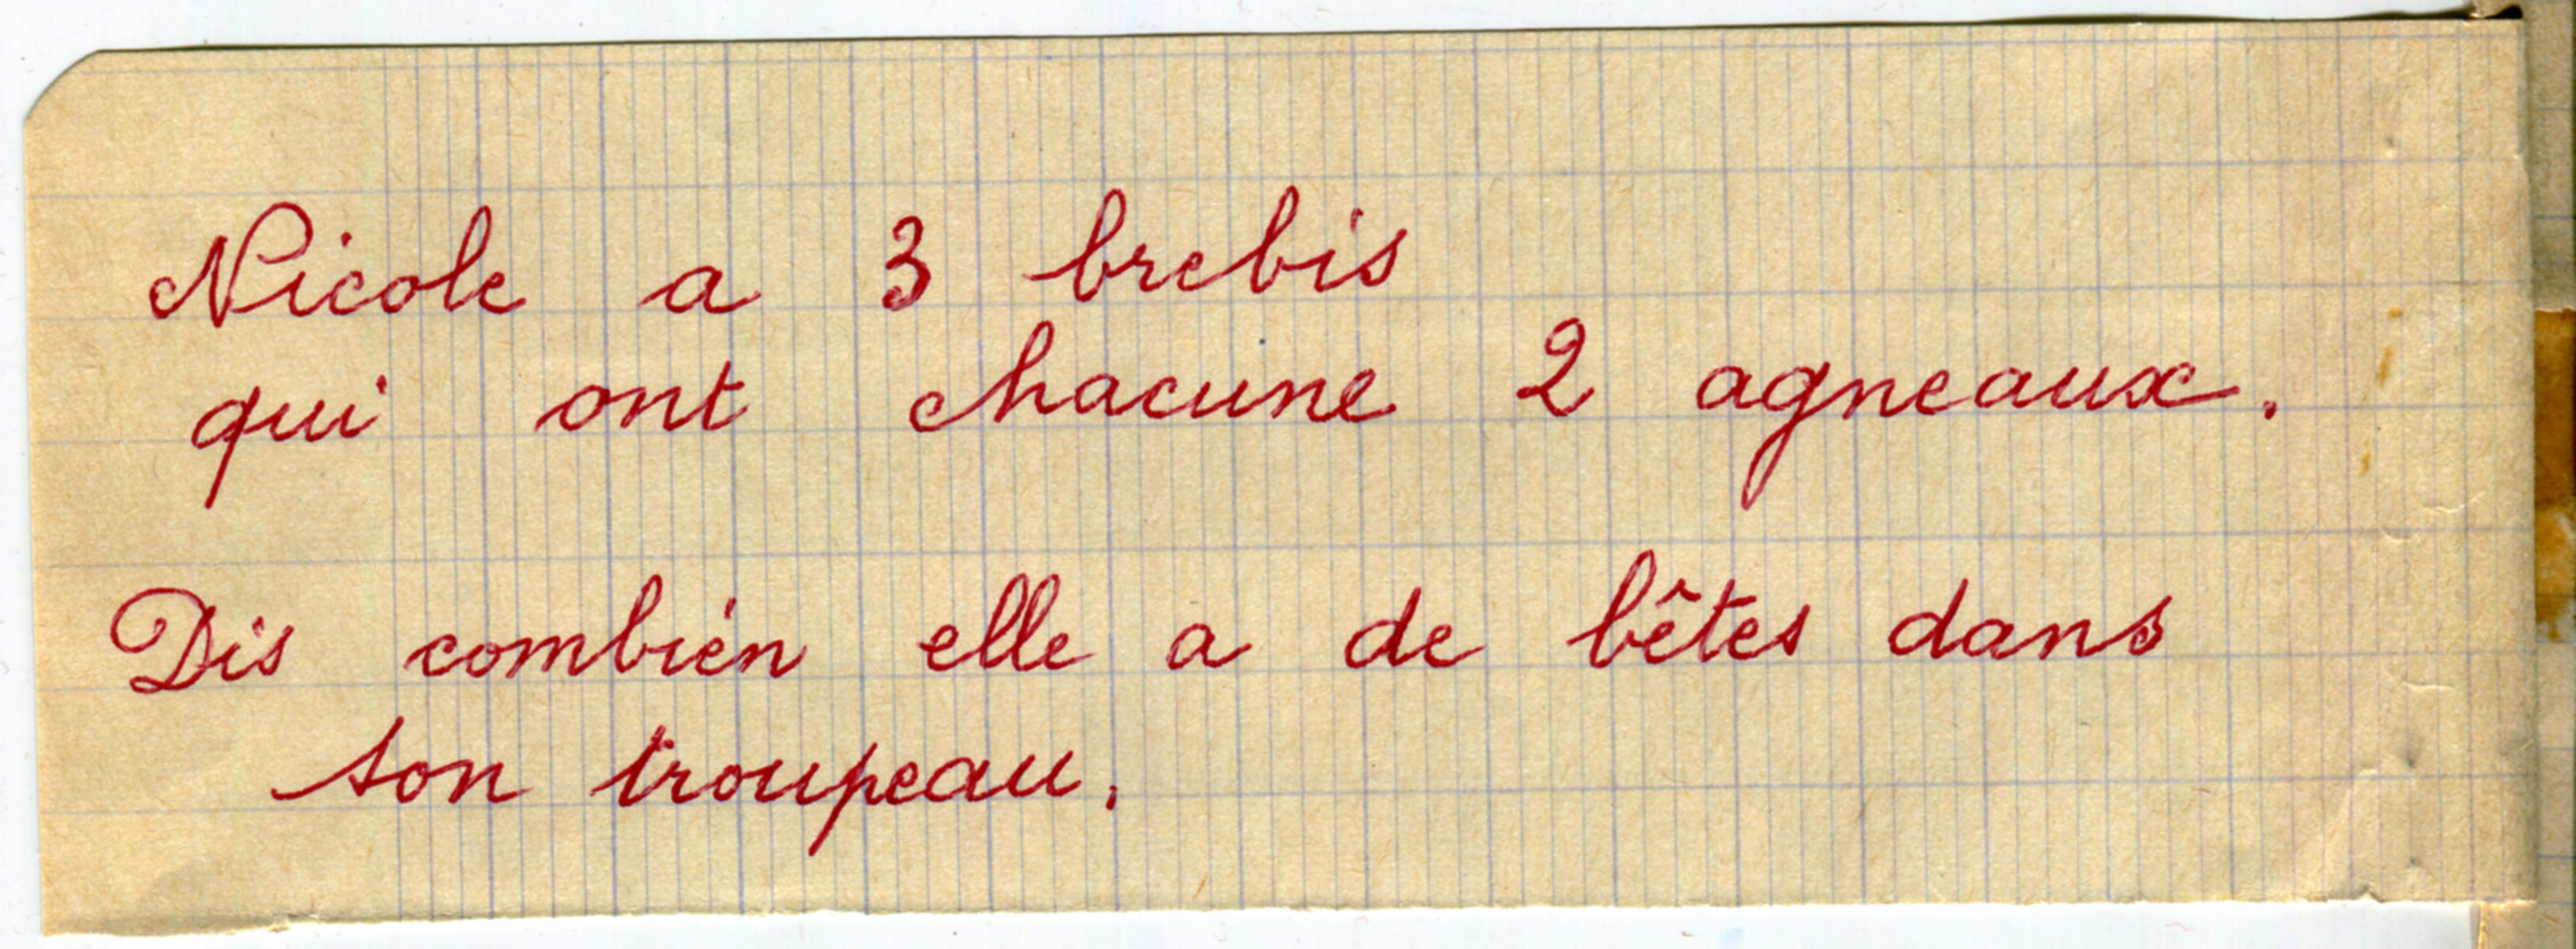 Nicole a 3 brebis
qui ont chacune 2 agneaux.
Dis combien elle a de bêtes dans
son troupeau.